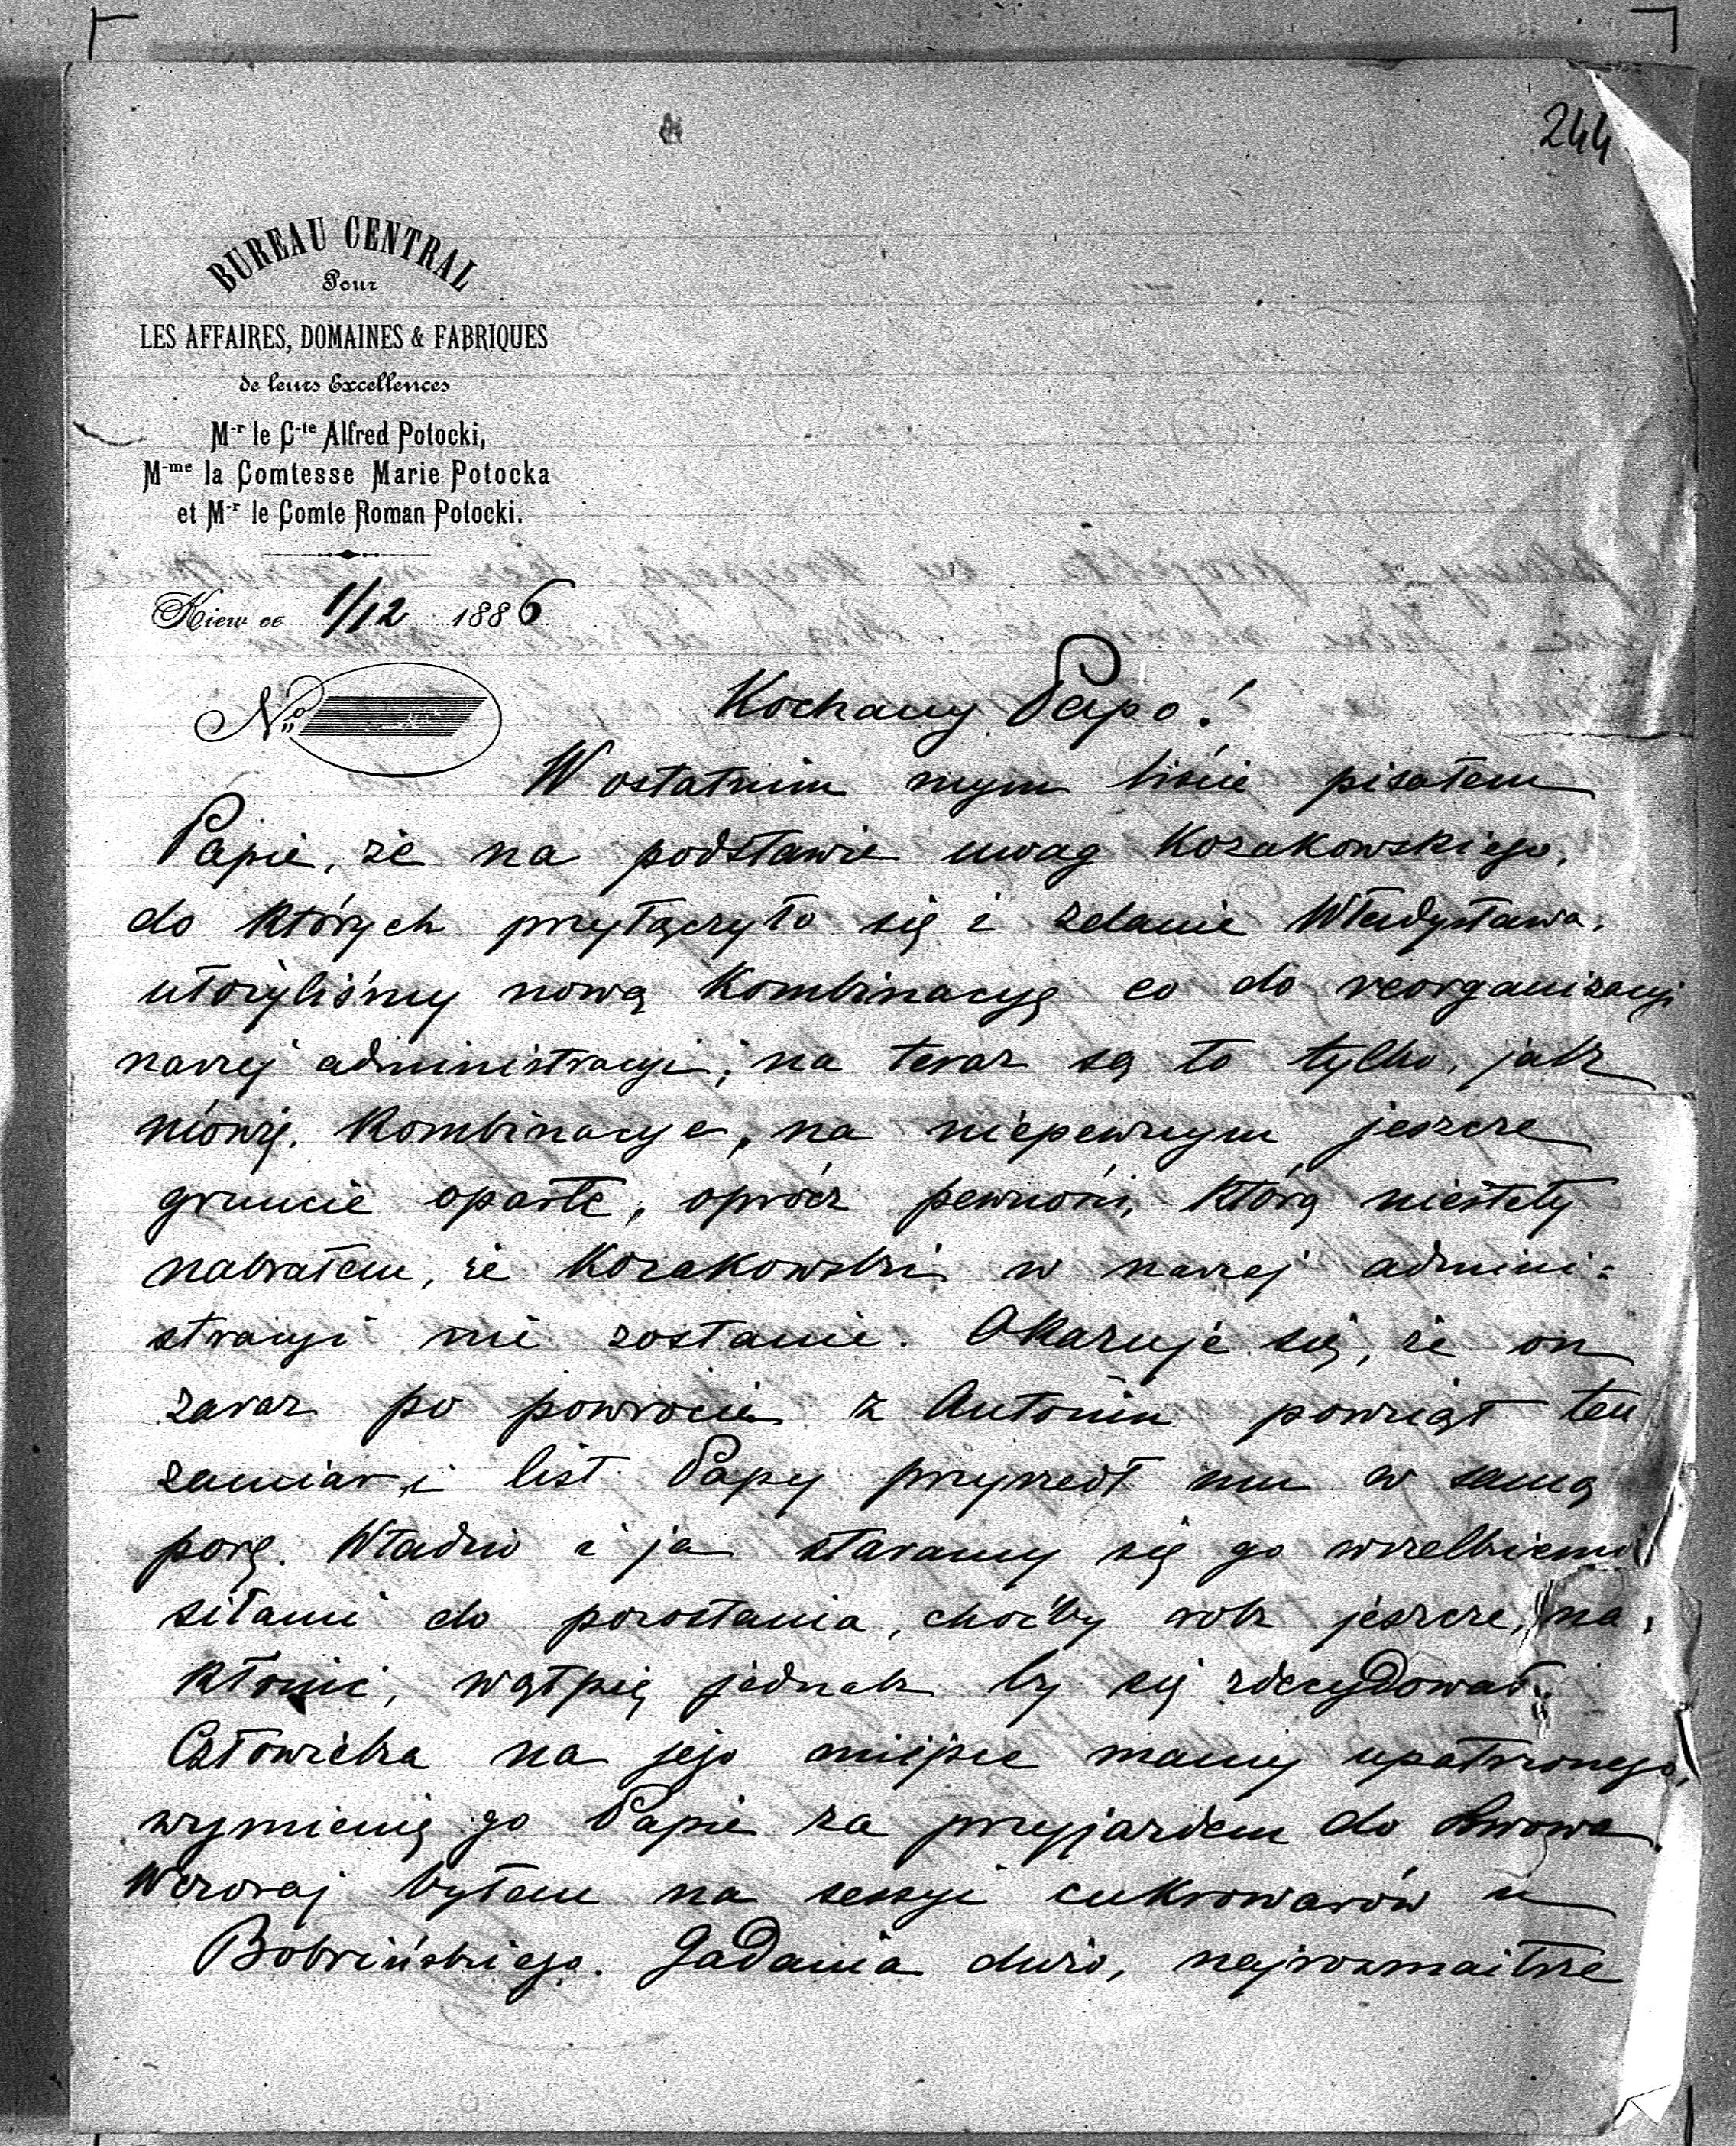 244
BUREAU CENTRAL
Pour
LES AFFAIRES, DOMAINES & FABRIQUES
de leurs Excellences
M-r le C-te Alfred Potocki,
M-me la Comtesse Marie Potocka
et M-r le Comte Roman Potocki.
Kiew ce 1/12 1886
No
Kochany Papo!
W ostatnim mym liście pisałem
Papie, że na podstawie uwag Kozakowskiego,
do których przyłączyło się i zdanie Władysława,
ułożyliśmy nową kombinacyę co do reorganizacyi
naszej administracyi; na teraz są to tylko, jak
mówię, kombinacye, na niepewnym jeszcze
gruncie oparte, oprócz pewności, którą niestety
nabrałem, że Kozakowski w naszej admini-
stracyi nie zostanie. Okazuje się, że on
zaraz po powrocie z Antonin powziął ten
zamiar i list Papy przyszedł mu w samą
porę. Władzio i ja staramy się go wszelkiemi
siłami do pozostania, choćby rok jeszcze, na-
kłonić, wątpię jednak by się zdecydował.
Człowieka na jego miejsce mamy upatrzonego,
wymienię go Papie za przyjazdem do Lwowa.
Wczoraj byłem na sessyi cukrowarów u
Bobrińskiego. Gadania dużo, najrozmaitsze